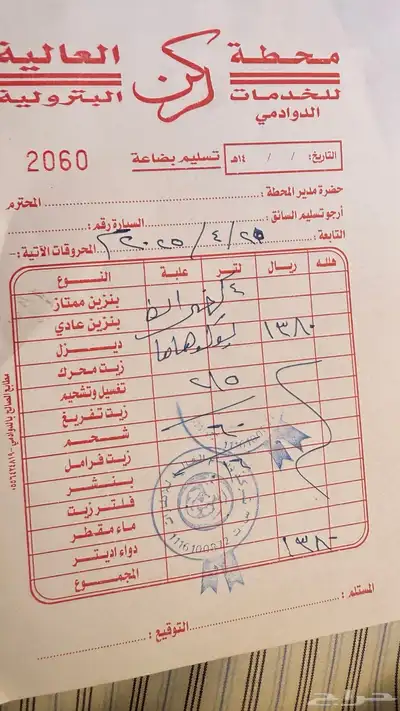 محطة ركن العالية
للخدمات البترولية
الدوادمي
التاريخ: / / ١٤هـ
تسليم بضاعة
2060
حضرة مدير المحطة : المحترم
أرجو تسليم السائق : السيارة رقم :
التابعة : ٢٠٢٥/٤/٢٥ المحروقات الآتية :-
النوع علبة لتر ريال هللة
بنزين ممتاز ٤
بنزين عادي
ديزل يوكوهاما ١٣٨٠
زيت محرك
غسيل وتشحيم ٢١٥
زيت تفريغ
شحم ٦٠
زيت فرامل
بنشر
فلتر زيت
ماء مقطر
دواء اديتر
المجموع ١٣٨٠
المستلم :
التوقيع :
مطابع الصالح بالدوادمي